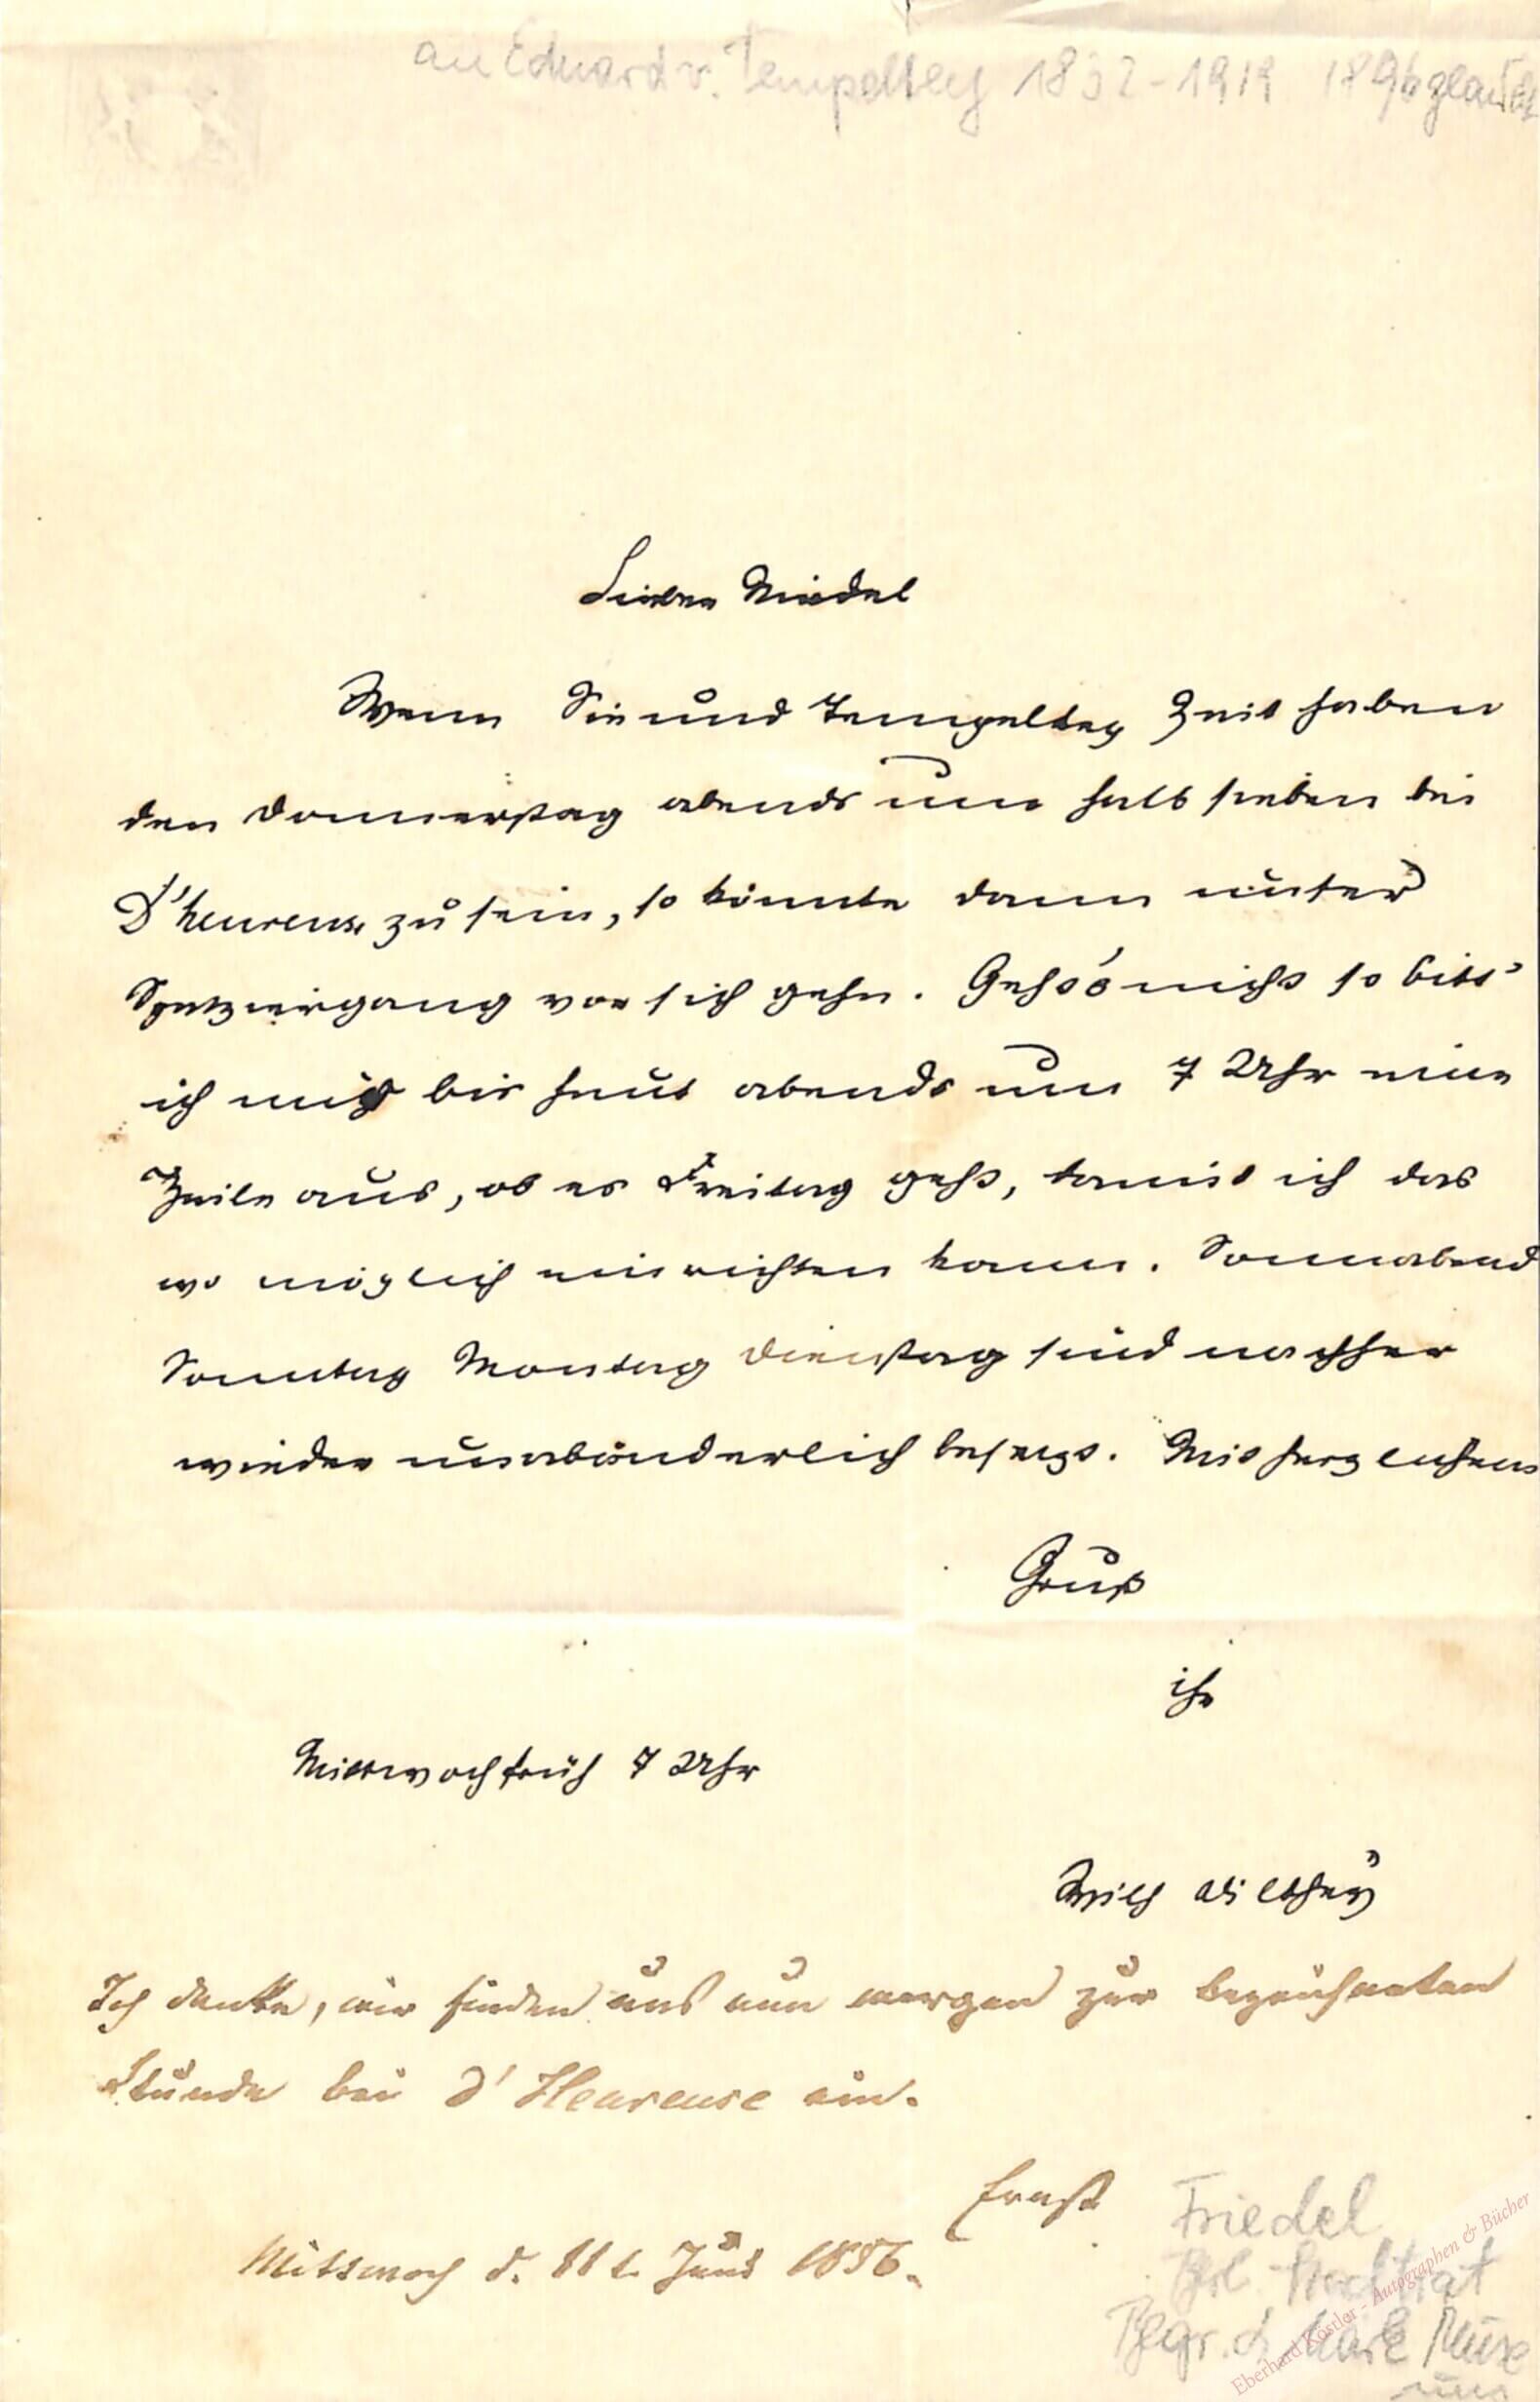 an Eduard v. Tempeltey 1832-1919 1896 geadelt
Lieber Friedel
Wenn Sie und Tempeltey Zeit haben
den Donnerstag abends um halb sieben bei
D'heureuse zu sein, so könnte dann unser
Spatziergang vor sich gehn. Geht's nicht so bitt'
ich mich bis heut abends um 7 Uhr eine
Zeile aus, ob es Freitag geht, damit ich das
wo möglich einrichten kann. Sonnabend
Sonntag Montag Dienstag sind nachher
wieder unabänderlich besetzt. Mit herzlichem
Gruß
ihr
Mittwoch früh 7 Uhr
Wilh Dilthey
Ich danke, wir finden uns nun morgen zur bezeichneten
Stunde bei d'Heureuse ein.
Ernst
Friedel
Mittwoch d. 11t. Juni 1856.
Berl. Stadtrat
Begr. d. Märk Muse
um
Eberhard Köstler - Autographen & Bücher